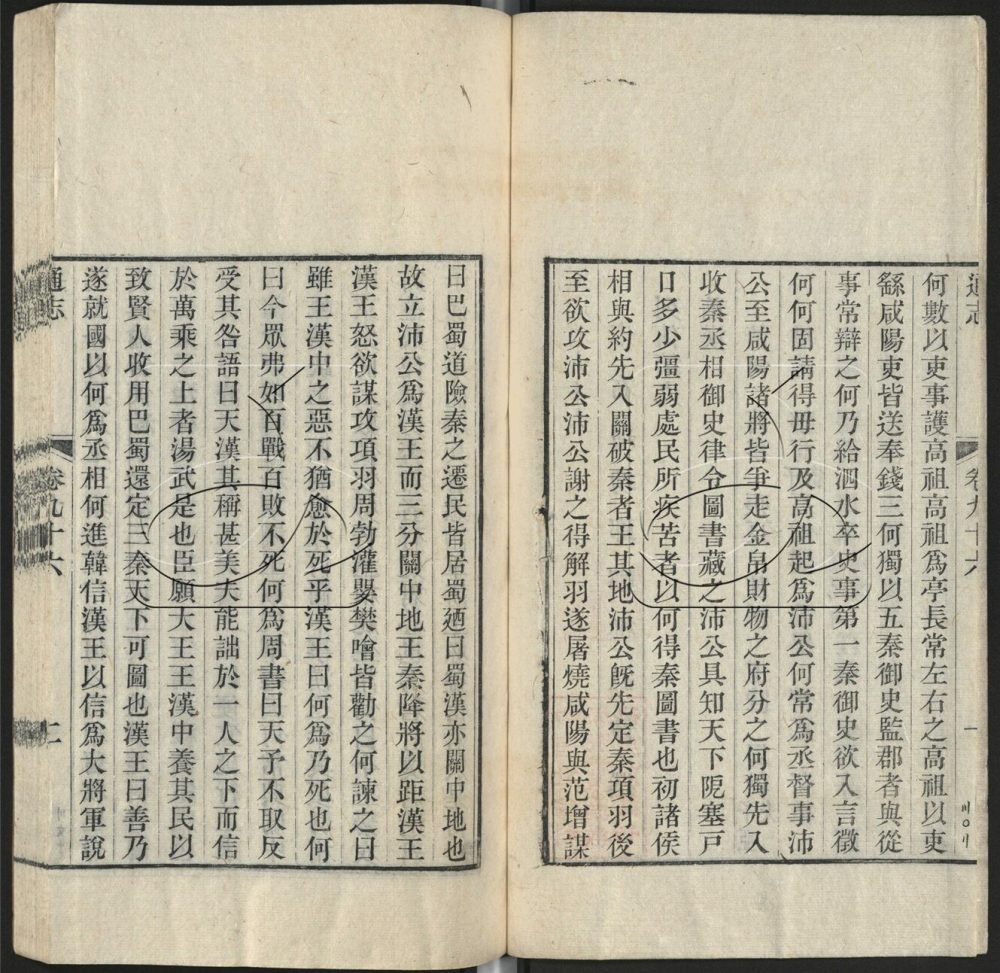 通志
卷九十六
一
何數以吏事護高祖高祖爲亭長常左右之高祖以吏
繇咸陽吏皆送奉錢三何獨以五秦御史監郡者與從
事常辯之何乃給泗水卒史事第一秦御史欲入言徵
何何固請得毋行及高祖起爲沛公何常爲丞督事沛
公至咸陽諸將皆爭走金帛財物之府分之何獨先入
收秦丞相御史律令圖書藏之沛公具知天下阨塞戸
口多少彊弱處民所疾苦者以何得秦圖書也初諸侯
相與約先入關破秦者王其地沛公旣先定秦項羽後
至欲攻沛公沛公謝之得解羽遂屠燒咸陽與范增謀
曰巴蜀道險秦之遷民皆居蜀廼曰蜀漢亦關中地也
故立沛公爲漢王而三分關中地王秦降將以距漢王
漢王怒欲謀攻項羽周勃灌嬰樊噲皆勸之何諫之曰
雖王漢中之惡不猶愈於死乎漢王曰何爲乃死也何
曰今眾弗如百戰百敗不死何爲周書曰天予不取反
受其咎語曰天漢其稱甚美夫能詘於一人之下而信
於萬乘之上者湯武是也臣願大王王漢中養其民以
致賢人收用巴蜀還定三秦天下可圖也漢王曰善乃
遂就國以何爲丞相何進韓信漢王以信爲大將軍說
通志
卷九十六
二